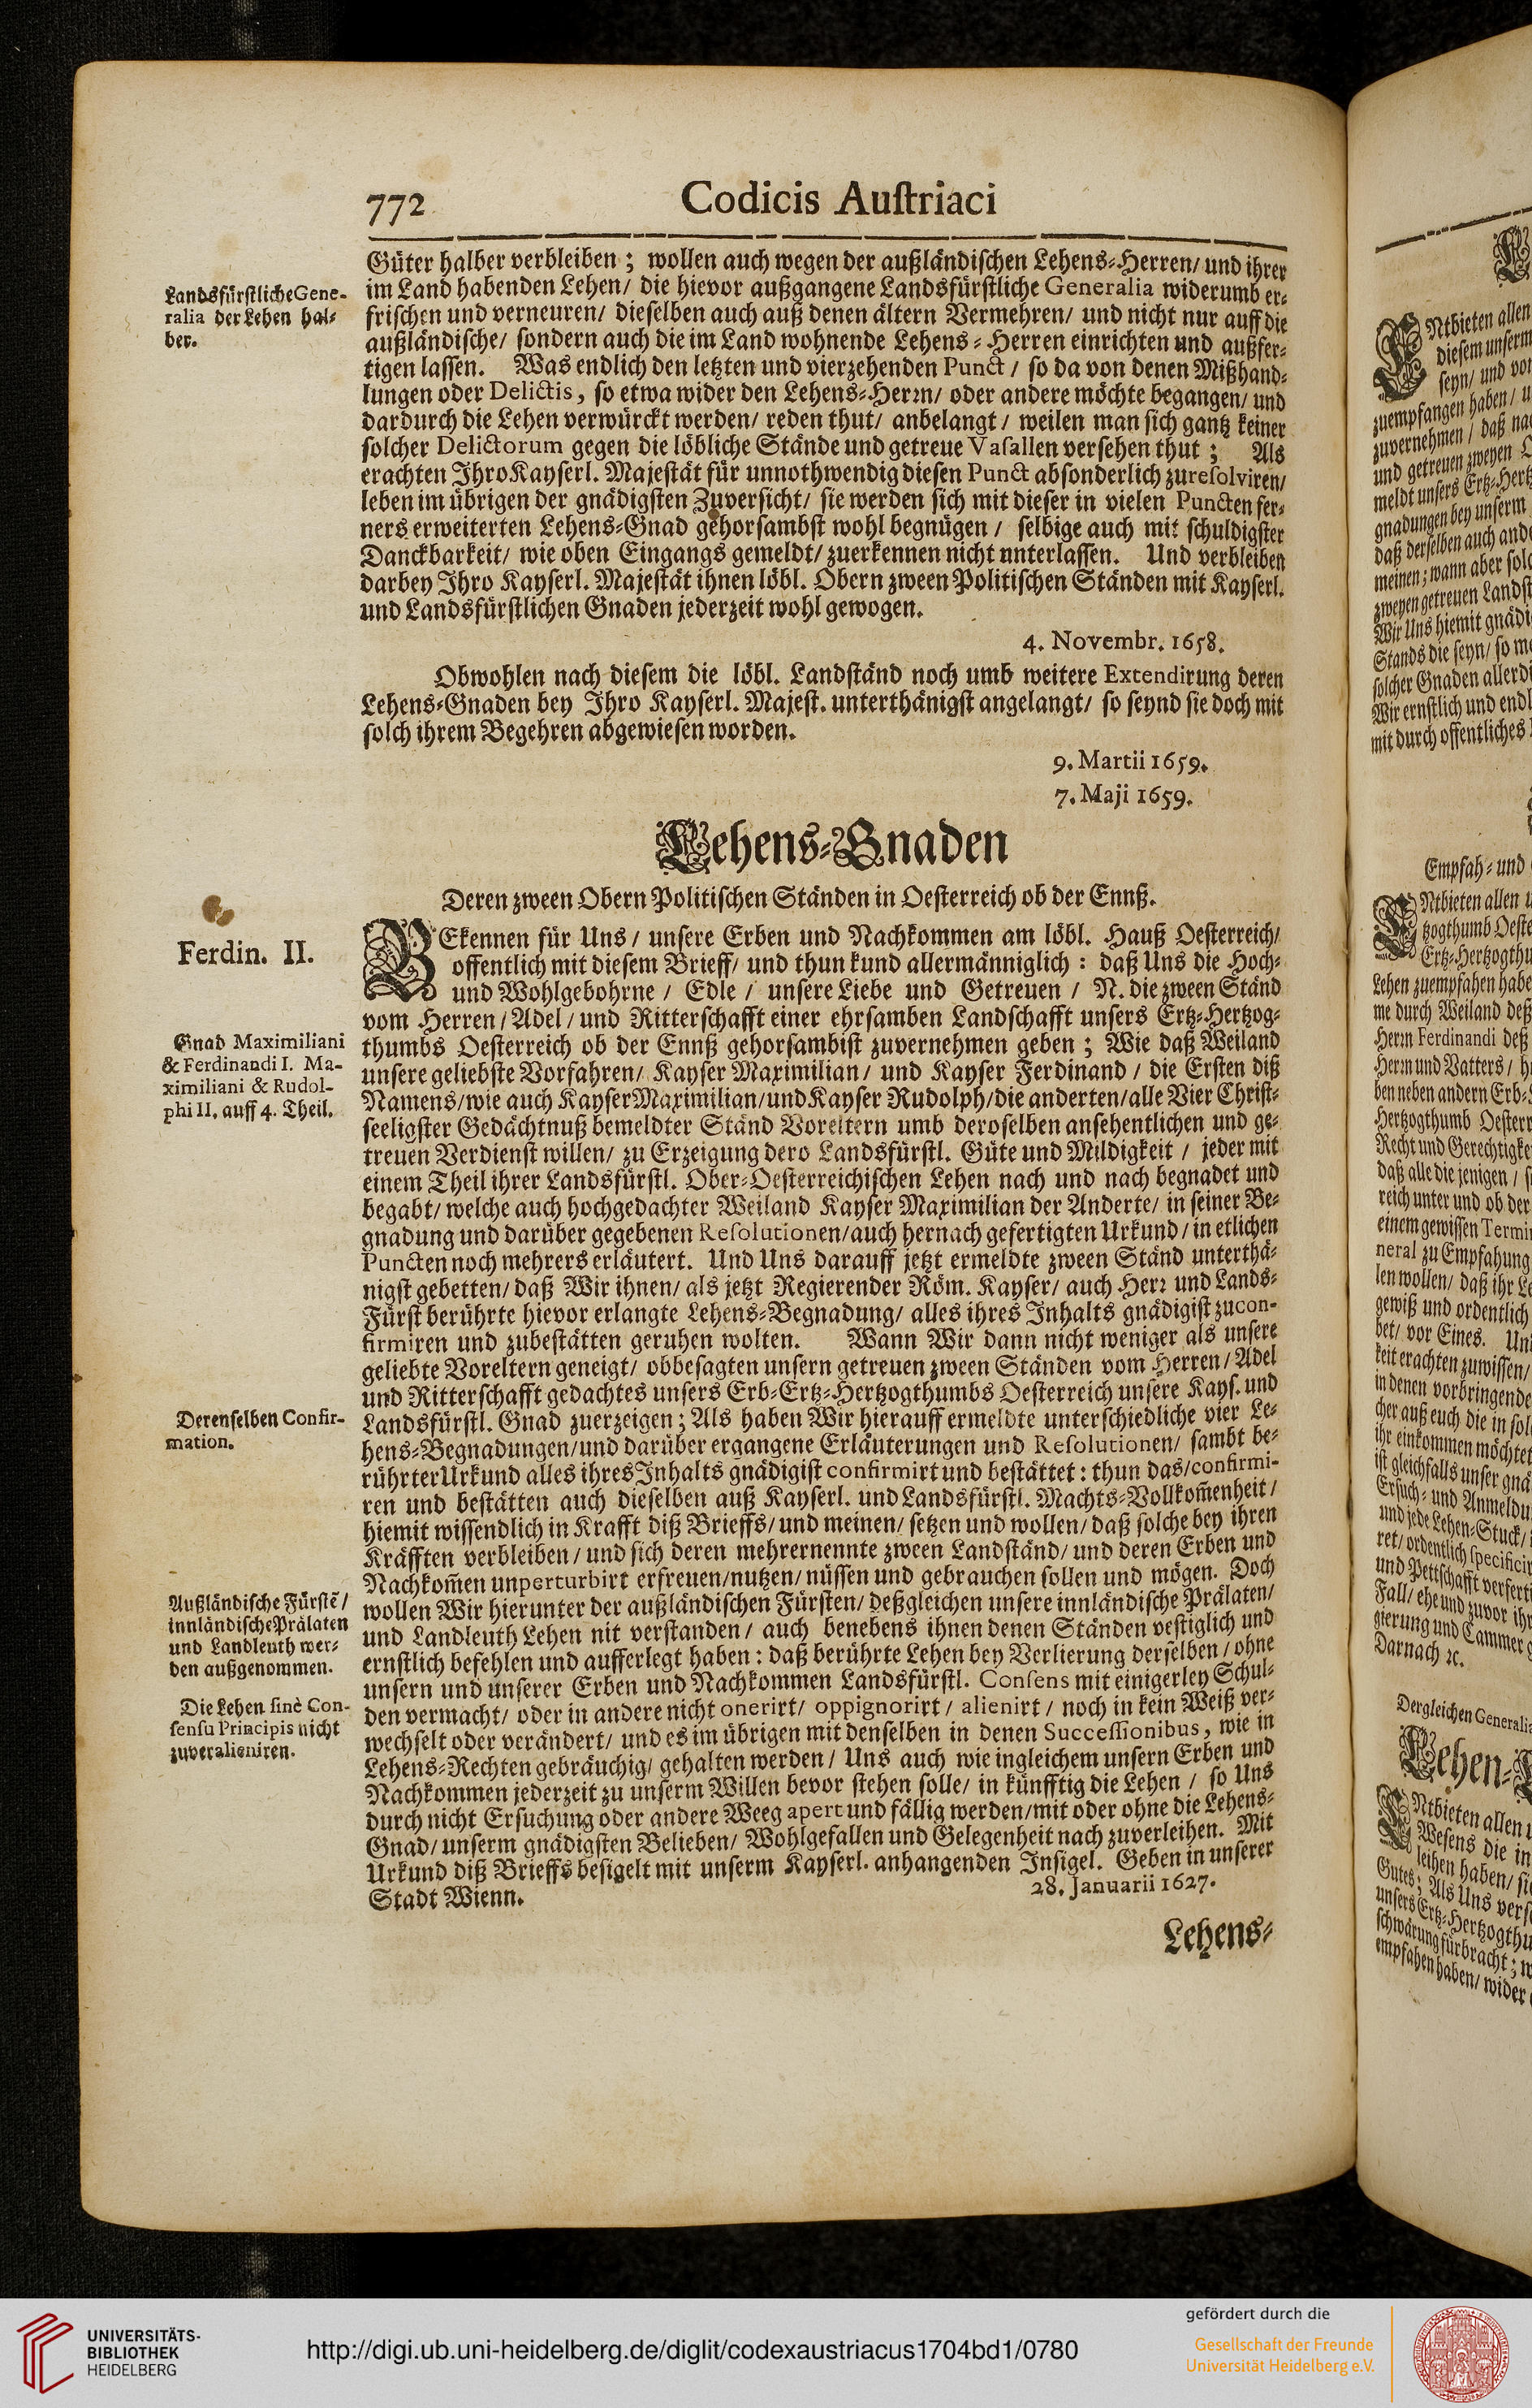 772 Codicis Auſtriaci
Güter halber verbleiben; wollen auch wegen der außländiſchen Lehens-Herren/ und ihrer
im Land habenden Lehen/ die hievor außgangene Landsfürſtliche Generalia widerumb er-
friſchen und verneuren/ dieſelben auch auß denen ältern Vermehren/ und nicht nur auff die
außländiſche/ ſondern auch die im Land wohnende Lehens-Herren einrichten und außfer-
tigen laſſen. Was endlich den letzten und vierzehenden Punct/ ſo da von denen Mißhand-
lungen oder Delictis, ſo etwa wider den Lehens-Herꝛn/ oder andere möchte begangen/ und
dardurch die Lehen verwürckt werden/ reden thut/ anbelangt/ weilen man ſich gantz keiner
ſolcher Delictorum gegen die löbliche Stände und getreue Vaſallen verſehen thut; Als
erachten Ihro Kayſerl. Majeſtät für unnothwendig dieſen Punct abſonderlich zu reſolviren/
leben im übrigen der gnädigſten Zuverſicht/ ſie werden ſich mit dieſer in vielen Puncten fer-
ners erweiterten Lehens-Gnad gehorſambſt wohl begnügen/ ſelbige auch mit ſchuldigſter
Danckbarkeit/ wie oben Eingangs gemeldt/ zuerkennen nicht unterlaſſen. Und verbleiben
darbey Ihro Kayſerl. Majeſtät ihnen löbl. Obern zween Politiſchen Ständen mit Kayſerl.
und Landsfürſtlichen Gnaden jederzeit wohl gewogen.
4. Novembr. 1658.
Obwohlen nach dieſem die löbl. Landſtänd noch umb weitere Extendirung deren
Lehens-Gnaden bey Ihro Kayſerl. Majeſt. unterthänigſt angelangt/ ſo ſeynd ſie doch mit
ſolch ihrem Begehren abgewieſen worden.
9. Martii 1659.
7. Maji 1659.
Landsfürſtliche Gene-
ralia der Lehen hal-
ber.
Lehens-Gnaden
Deren zween Obern Politiſchen Ständen in Oeſterreich ob der Ennß.
BEkennen für Uns/ unſere Erben und Nachkommen am löbl. Hauß Oeſterreich/
offentlich mit dieſem Brieff/ und thun kund allermänniglich: daß Uns die Hoch-
und Wohlgebohrne/ Edle/ unſere Liebe und Getreuen/ N. die zween Ständ
vom Herren/ Adel/ und Ritterſchafft einer ehrſamben Landſchafft unſers Ertz-Hertzog-
thumbs Oeſterreich ob der Ennß gehorſambiſt zuvernehmen geben; Wie daß Weiland
unſere geliebſte Vorfahren/ Kayſer Maximilian/ und Kayſer Ferdinand/ die Erſten diß
Namens/ wie auch Kayſer Maximilian/ und Kayſer Rudolph/ die anderten/ alle Vier Chriſt-
ſeeligſter Gedächtnuß bemeldter Ständ Voreltern umb deroſelben anſehentlichen und ge-
treuen Verdienſt willen/ zu Erzeigung dero Landsfürſtl. Güte und Mildigkeit/ jeder mit
einem Theil ihrer Landsfürſtl. Ober-Oeſterreichiſchen Lehen nach und nach begnadet und
begabt/ welche auch hochgedachter Weiland Kayſer Maximilian der Anderte/ in ſeiner Be-
gnadung und darüber gegebenen Reſolutionen/ auch hernach gefertigten Urkund/ in etlichen
Puncten noch mehrers erläutert. Und Uns darauff jetzt ermeldte zween Ständ unterthä-
nigſt gebetten/ daß Wir ihnen/ als jetzt Regierender Röm. Kayſer/ auch Herꝛ und Lands-
Fürſt berührte hievor erlangte Lehens-Begnadung/ alles ihres Inhalts gnädigiſt zu con-
firmiren und zubeſtätten geruhen wolten. Wann Wir dann nicht weniger als unſere
geliebte Voreltern geneigt/ obbeſagten unſern getreuen zween Ständen vom Herren/ Adel
und Ritterſchafft gedachtes unſers Erb-Ertz-Hertzogthumbs Oeſterreich unſere Kayſ. und
Landsfürſtl. Gnad zuerzeigen; Als haben Wir hierauff ermeldte unterſchiedliche vier Le-
hens-Begnadungen/ und darüber ergangene Erläuterungen und Reſolutionen/ ſambt be-
rührter Urkund alles ihres Inhalts gnädigiſt confirmirt und beſtättet: thun das/ confirmi-
ren und beſtätten auch dieſelben auß Kayſerl. und Landsfürſtl. Machts-Vollkom̃enheit/
hiemit wiſſendlich in Krafft diß Brieffs/ und meinen/ ſetzen und wollen/ daß ſolche bey ihren
Kräfften verbleiben/ und ſich deren mehrernennte zween Landſtänd/ und deren Erben und
Nachkom̃en unperturbirt erfreuen/ nutzen/ nüſſen und gebrauchen ſollen und mögen. Doch
wollen Wir hierunter der außländiſchen Fürſten/ deßgleichen unſere innländiſche Prälaten/
und Landleuth Lehen nit verſtanden/ auch benebens ihnen denen Ständen veſtiglich und
ernſtlich befehlen und aufferlegt haben: daß berührte Lehen bey Verlierung derſelben/ ohne
unſern und unſerer Erben und Nachkommen Landsfürſtl. Conſens mit einigerley Schul-
den vermacht/ oder in andere nicht onerirt/ oppignorirt/ alienirt/ noch in kein Weiß ver-
wechſelt oder verändert/ und es im übrigen mit denſelben in denen Succeſſionibus, wie in
Lehens-Rechten gebräuchig/ gehalten werden/ Uns auch wie ingleichem unſern Erben und
Nachkommen jederzeit zu unſerm Willen bevor ſtehen ſolle/ in künfftig die Lehen/ ſo Uns
durch nicht Erſuchung oder andere Weeg apert und fällig werden/ mit oder ohne die Lehens-
Gnad/ unſerm gnädigſten Belieben/ Wohlgefallen und Gelegenheit nach zuverleihen. Mit
Urkund diß Brieffs beſigelt mit unſerm Kayſerl. anhangenden Inſigel. Geben in unſerer
Stadt Wienn. 28. Januarii 1627.
Lehens-
Ferdin. II.
Gnad Maximiliani
& Ferdinandi I. Ma-
ximiliani & Rudol-
phi II. auff 4. Theil.
Derenſelben Confir-
mation.
Außländiſche Fürſtẽ/
innländiſche Prälaten
und Landleuth wer-
den außgenommen.
Die Lehen ſinè Con-
ſenſu Principis nicht
zuveralieniren.
NTbieten allen
dieſem unſerm
ſeyn/ und
zuempfangen haben/
zuvernehmen/ daß
und getreuen zweyen
meldt unſers Ertz-
gnadungen bey unſerm
daß derſelben auch
meinen; wann aber
zweyen getreuen
Wir Uns hiemit
Stands die ſeyn/ ſo
ſolcher Gnaden
Wir ernſtlich und
mit durch offentliches
Empfah- und
NTbieten allen
Lehen zuempfahen
me durch Weiland deß
Herꝛn Ferdinandi deß
Herꝛn und Vatters/
ben neben andern
Hertzogthumb
Recht und
daß alle die jenigen/
reich unter und ob der
einem gewiſſen
neral zu Empfahung
len wollen/ daß ihr
gewiß und ordentlich
bet/ vor Eines.
keit erachten zuwiſſen/
in denen vorbringende
cher auß euch die in
ihr einkommen
iſt gleichfalls unſer
Erſuch- und
und jede Lehen-Stuck/
ret/ ordentlich
und Pettſchafft
Fall/ ehe und zuvor
gierung und Cammer
Darnach ꝛc.
Dergleichen
Lehen-
NTbieten allen
Weſens die in
leihen haben/
Gutes; Als Uns
unſers Ertz-
ſchwärung fürbracht;
empfahen haben/ wider
UNIVERSITÄTS-
BIBLIOTHEK
HEIDELBERG
http://digi.ub.uni-heidelberg.de/diglit/codexaustriacus1704bd1/0780
gefördert durch die
Gesellschaft der Freunde
Universität Heidelberg e.V.